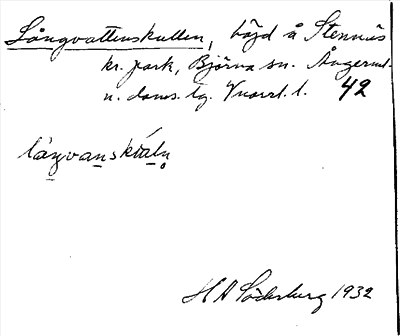 Långvattenskullen, höjd å Stennäs
kr. park, Björna sn. Ångerml.
n. doms. tg. Vnorrl. l. 42
H A Söderberg 1932